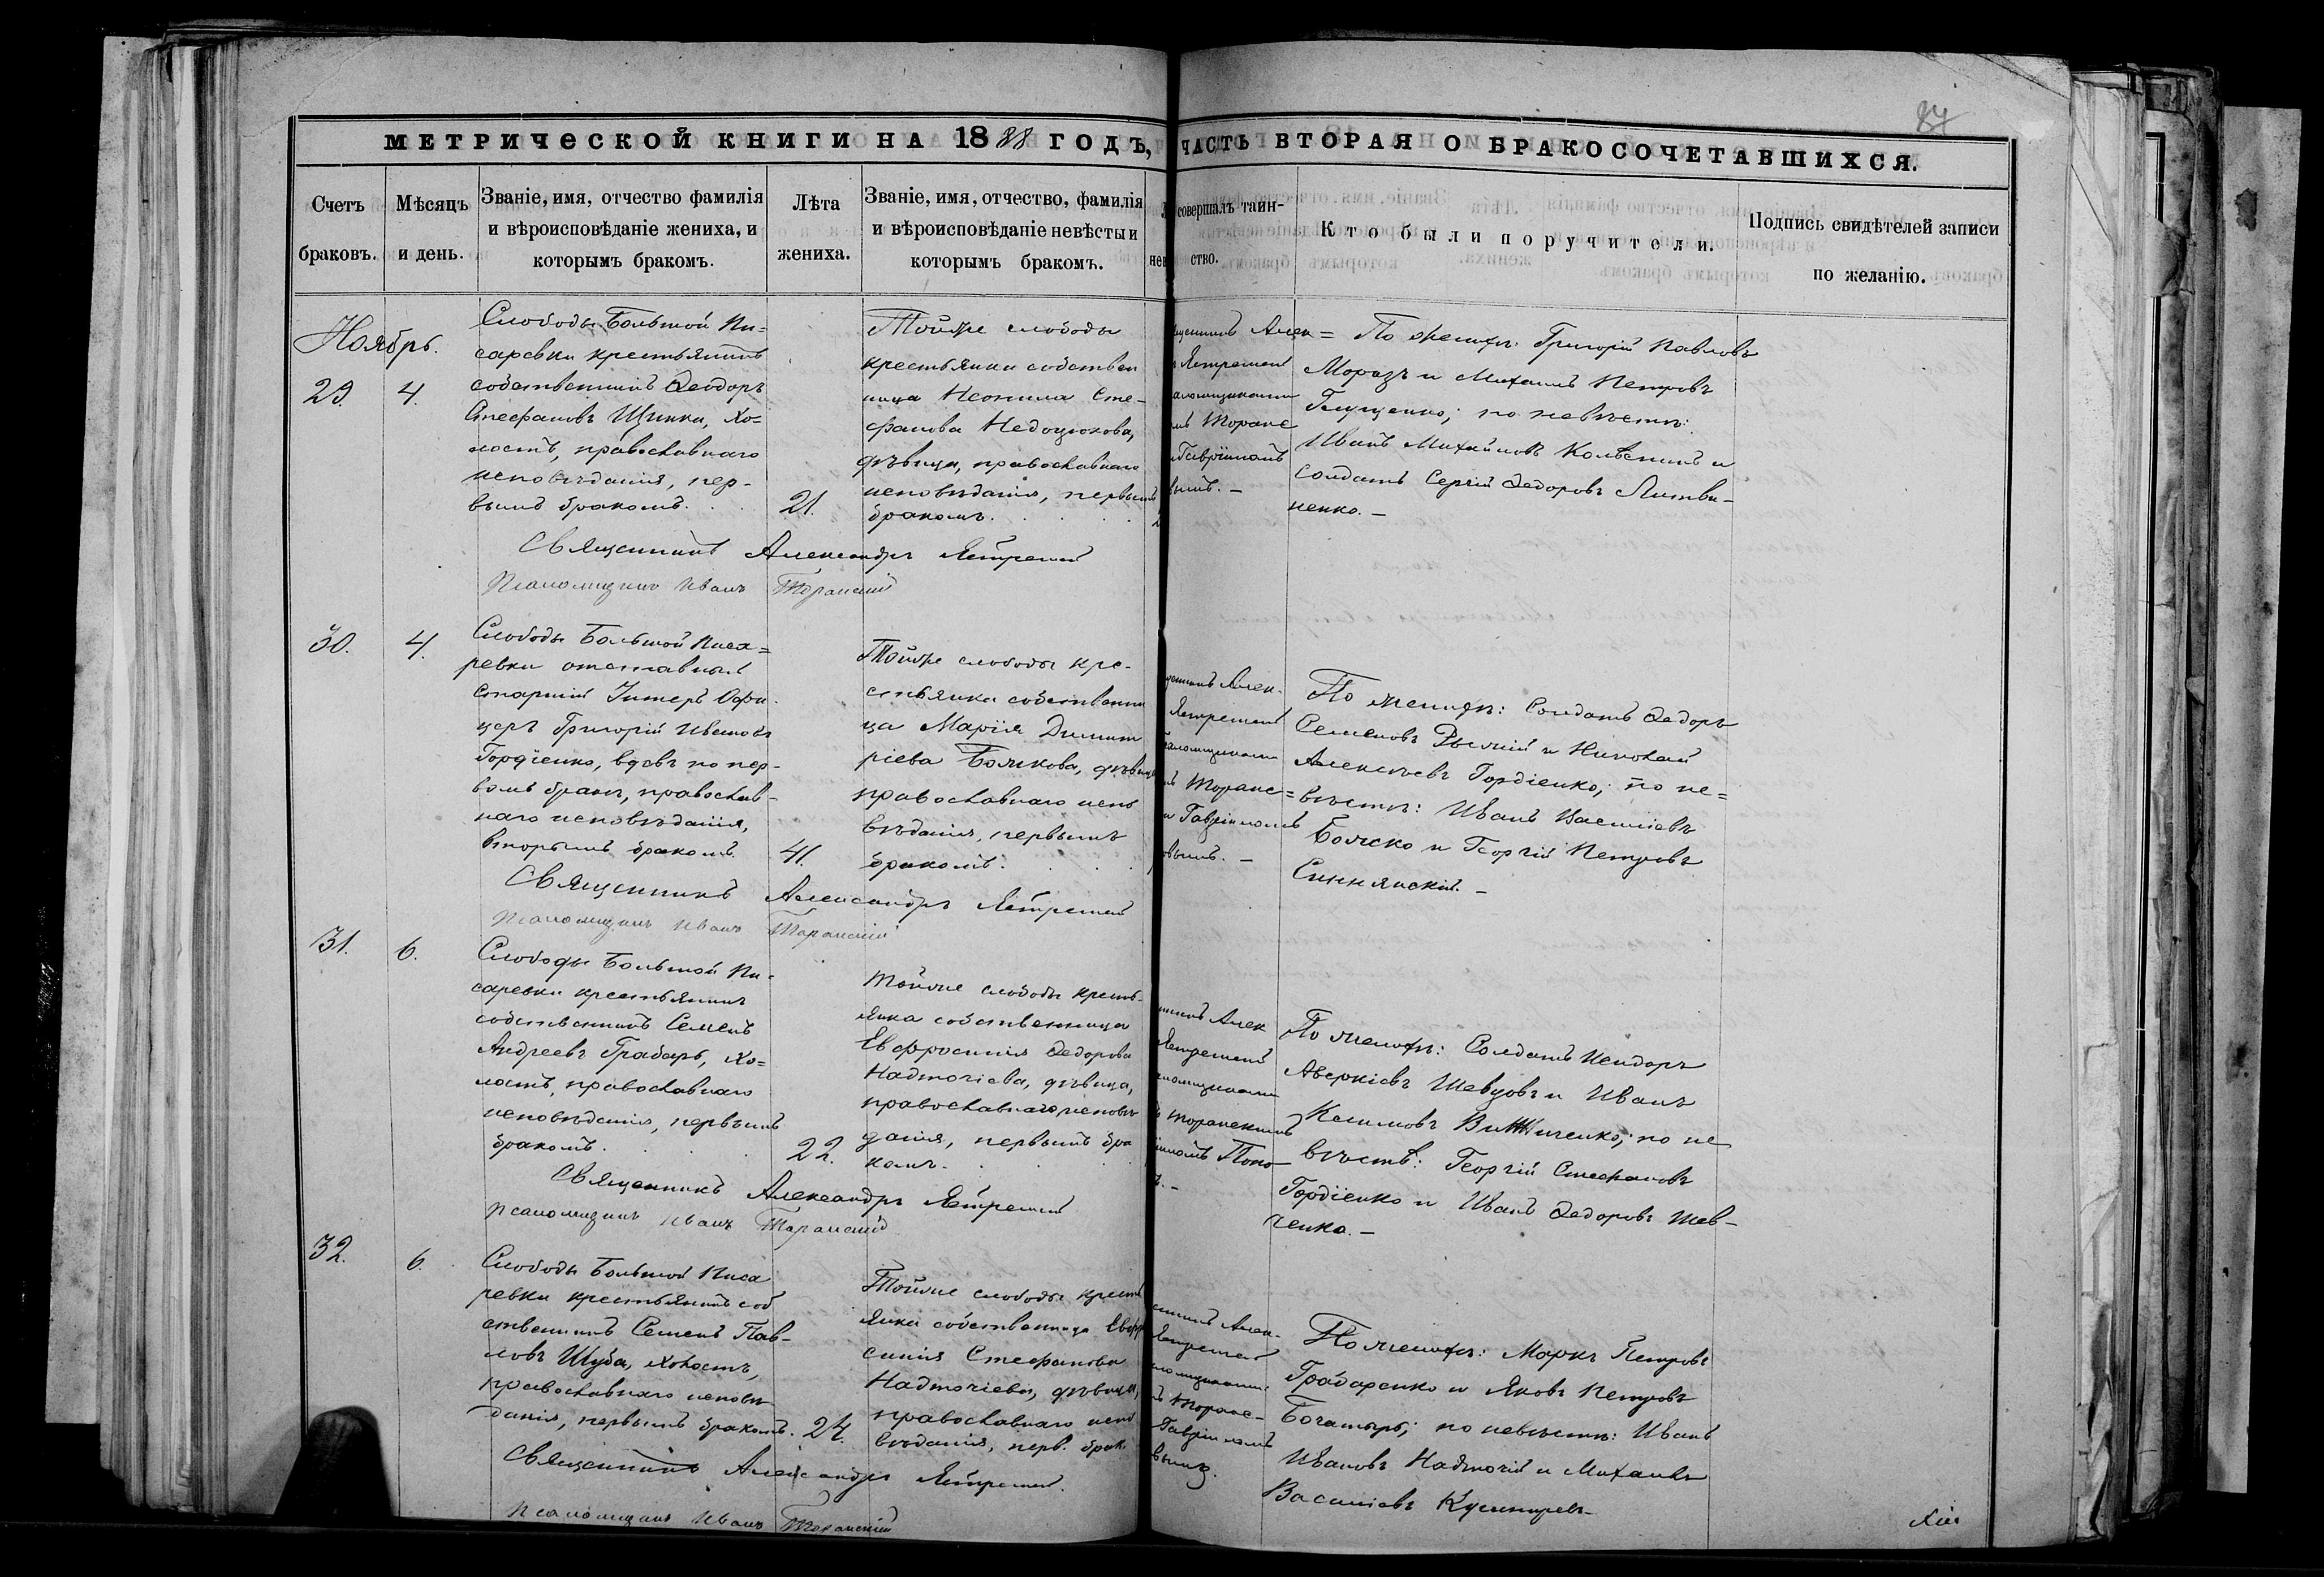 84
МЕТРИЧЕСКОЙ КНИГИ НА 1888 ГОДЪ, ЧАСТЬ ВТОРАЯ О БРАКОСОЧЕТАВШИХСЯ.
Счетъ браковъ.
Мѣсяцъ и день.
Званіе, имя, отчество фамилія
и вѣроисповѣданіе жениха, и
которымъ бракомъ.
Лѣта
жениха.
Званіе, имя, отчество, фамилія
и вѣроисповѣданіе невѣсты и
которымъ бракомъ.
совершалъ таин-
ство.
Кто были поручители.
Подпись свидѣтелей записи
по желанію.
Ноябрь.
29. 4.
Слободы Большой Пи-
саревки крестьянинъ
собственникъ Ѳеодоръ
Стефановъ Щинка, хо-
лостъ, православнаго
исповѣданія, пер-
вымъ бракомъ.
21.
Тойже слободы
крестьянка собствен
ница Неонила Сте-
фанова Недоцюкова,
дѣвица, православнаго
исповѣданія, первымъ
бракомъ.
щенникъ Алек=
Ястремскій
аломщикомъ
мъ Торанс
Гавріиломъ
вымъ. –
По женихѣ: Григорій Павловъ
Морозъ и Михаилъ Петровъ
Глущенко; по невѣстѣ:
Иванъ Михайловъ Колѣсникъ и
солдатъ Сергій Ѳедоровъ Литви-
ненко. –
Священникъ Александръ Ястремскій
Псаломщикъ Иванъ Торанскій
30. 4.
Слободы Большой Писа=
ревки отставный
Старшій Унтеръ Офи-
церъ Григорій Ивановъ
Гордіенко, вдовъ по пер-
вомъ бракѣ, православ-
наго исповѣданія,
вторымъ бракомъ.
41.
Тойже слободы кре-
стьянка собственни
ца Марія Димит
ріева Божкова, дѣвица
православнаго испо
вѣданія, первымъ
бракомъ.
щенникъ Алек-
Ястремскій
саломщикомъ
мъ Торанс=
и Гавріиломъ
овымъ. –
По женихѣ: Солдатъ Ѳедоръ
Семеновъ Рыжій и Николай
Алексѣевъ Гордіенко; по не=
вѣстѣ: Иванъ Василіевъ
Божко и Георгій Петровъ
Синнянскій. –
Священникъ Александръ Ястремскій
Псаломщикъ Иванъ Торанскій
31. 6.
Слободы Большой Пи-
саревки крестьянинъ
собственникъ Семенъ
Андреевъ Грабарь, хо=
лостъ, православнаго
исповѣданія, первымъ
бракомъ.
22.
Тойже слободы кресть-
янка собственница
Евфросинія Ѳедорова
Надточіева, дѣвица,
православнаго исповѣ
данія, первымъ бра
комъ.
нникъ Алек
Ястремскій
аломщикомъ
Торанскимъ
іиломъ Попо
ъ. –
По женихѣ: Солдатъ Исидоръ
Аверкіевъ Шевцовъ и Иванъ
по не
вѣстѣ: Георгій Стефановъ
Гордіенко и Иванъ Ѳедоровъ Шев-
ченко. –
Священникъ Александръ Ястремскій
Псаломщикъ Иванъ Торанскій
32. 6.
Слободы Большой Писа
ревки крестьянинъ соб
ственникъ Семенъ Пав-
ловъ Шуба, холостъ,
православнаго исповѣ
данія, первымъ бракомъ.
24.
Тойже слободы кресть
янка собственница Евфр
синія Стефанова
Надточіева, дѣвица,
православнаго испо
вѣданія, перв. брак.
нникъ Алек-
Ястремскій
ломщикомъ
ъ Торанс-
Гавріиломъ
вымъ.
По женихѣ: Маркъ Петровъ
Грабаренко и Яковъ Петровъ
Богатырь; по невѣстѣ: Иванъ
Ивановъ Надточій и Михаилъ
Василіевъ
Священникъ Александръ Ястремскій.
Псаломщикъ Иванъ Торанскій